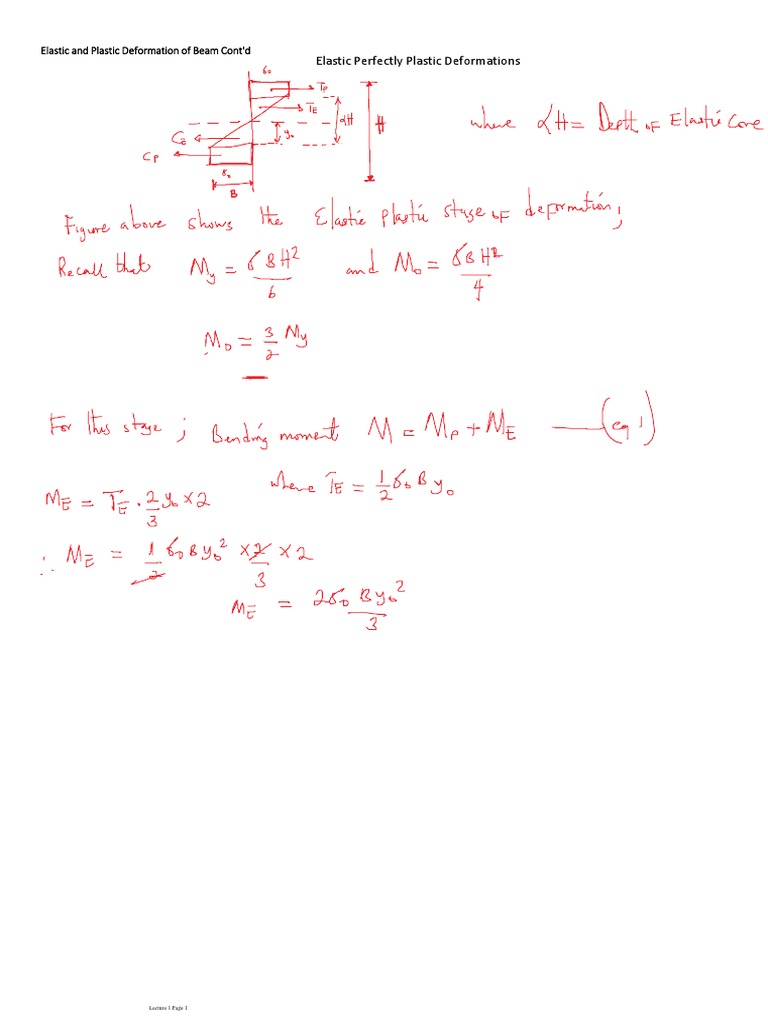 Elastic and Plastic Deformation of Beam Cont'd
Elastic Perfectly Plastic Deformations
σo
Tp
TE
αH
H
yo
Ce
Cp
σo
B
where αH = Depth of Elastic Core
Figure above shows the Elastic plastic stage of deformation;
Recall that My = σBH²/6 and Mo = σBH²/4
Mo = 3/2 My
For this stage; Bending moment M = Mp + ME —— (eq 1)
ME = TE . 2/3 yo x 2 where TE = 1/2 σo B yo
∴ ME = 1/2 σo B yo² x 2/3 x 2
ME = 2σo B yo²/3
Lecture 1 Page 1